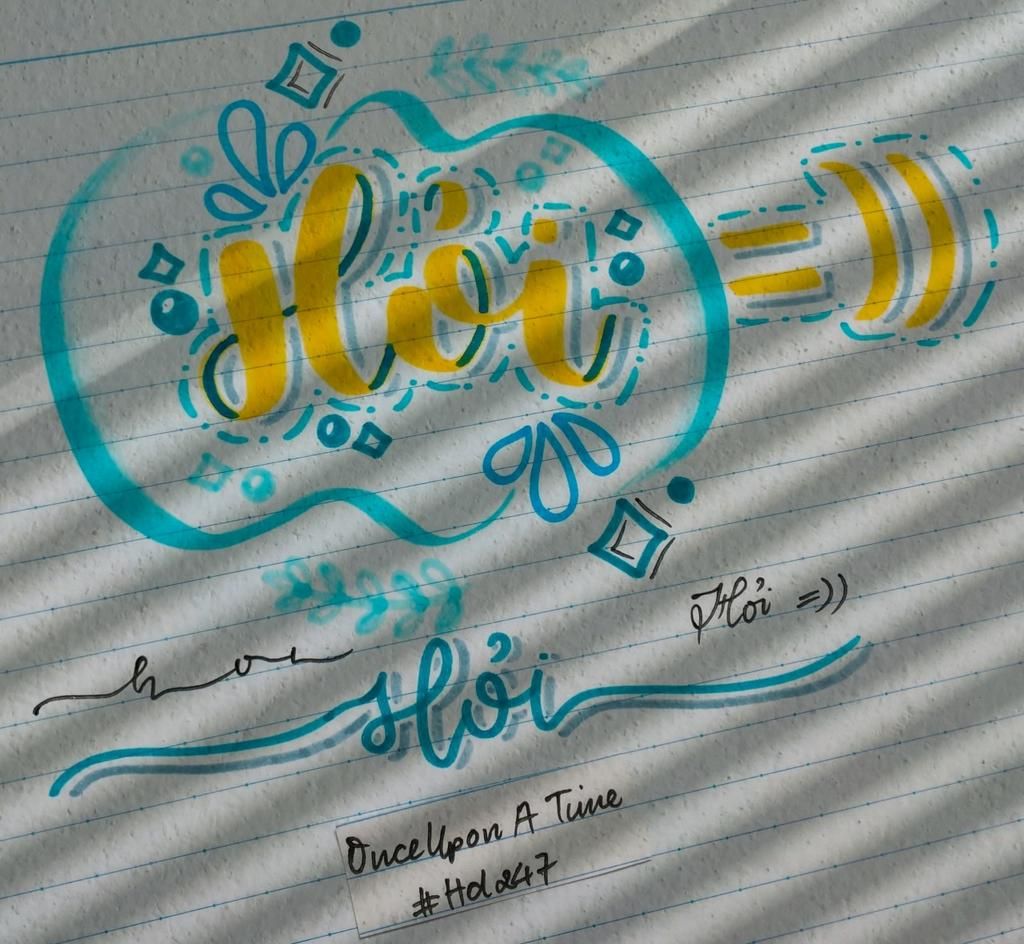 Hỏi =))
Hỏi =))
hoi
Hỏi
OnceUpon A Time
#Hd247